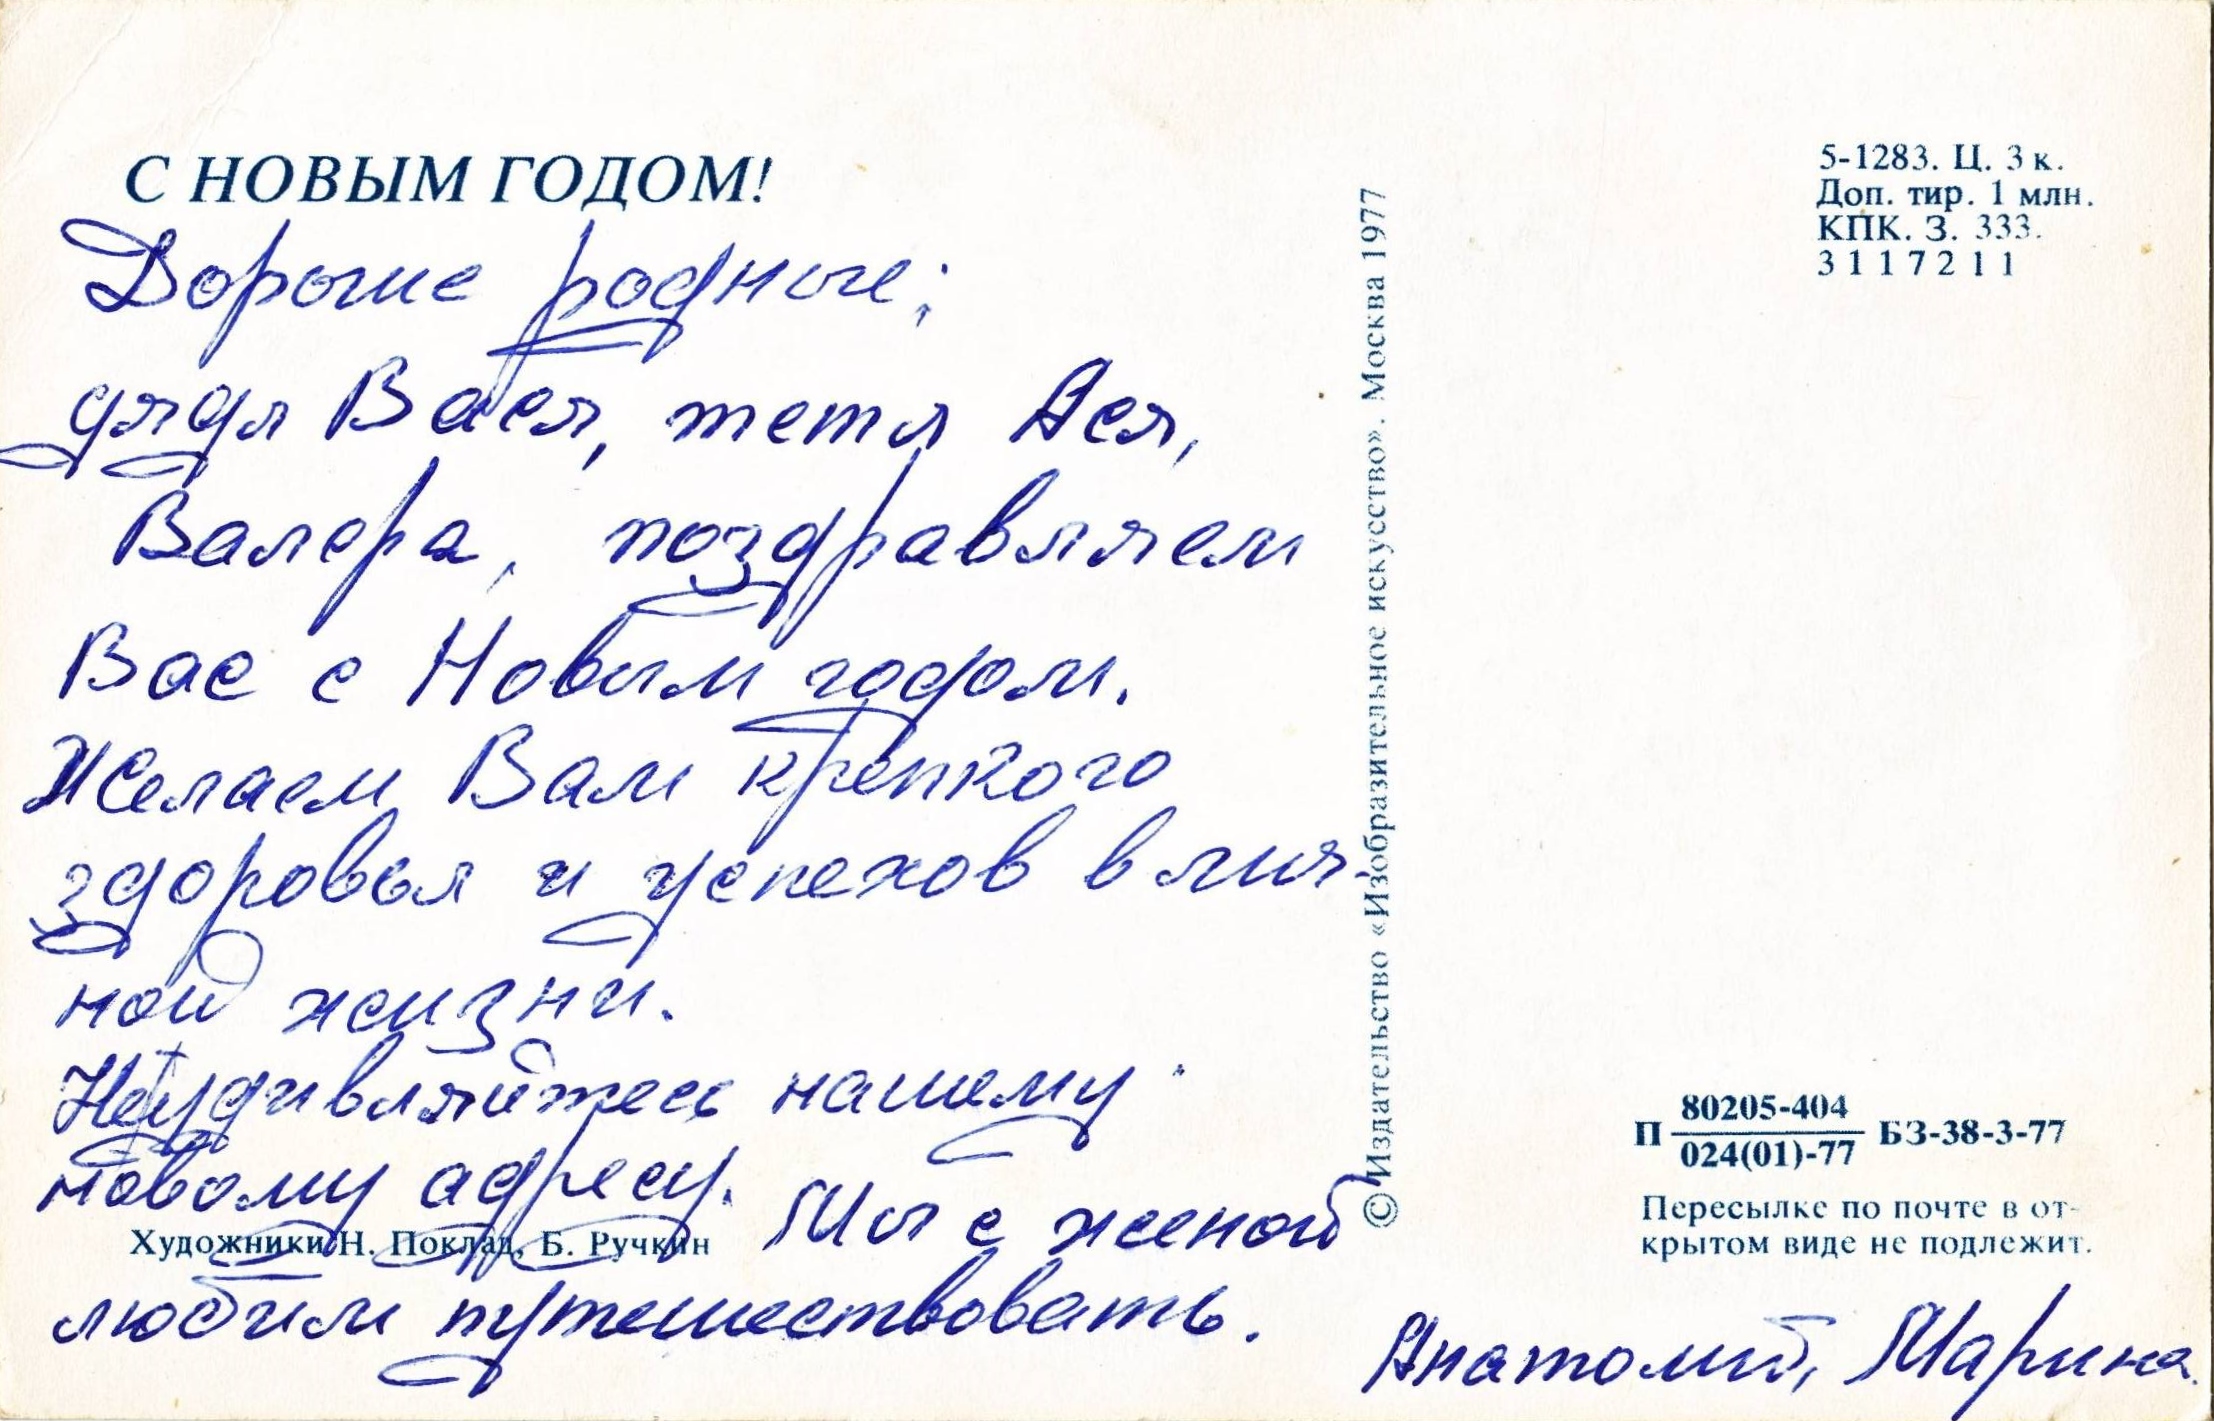 С НОВЫМ ГОДОМ!
Дорогие родные:
дядя Вася, тетя Ася,
Валера, поздравляем
Вас с Новым годом.
Желаем Вам крепкого
здоровья и успехов в лич-
ной жизни.
Не удивляйтесь нашему
новому адресу. Мы с женой
любим путешествовать.
Анатолий, Марина.
Художники Н. Поклад, Б. Ручкин
© Издательство «Изобразительное искусство». Москва 1977
5-1283. Ц. 3 к.
Доп. тир. 1 млн.
КПК. З. 333.
3117211
П 80205-404 БЗ-38-3-77
024(01)-77
Пересылке по почте в от-
крытом виде не подлежит.